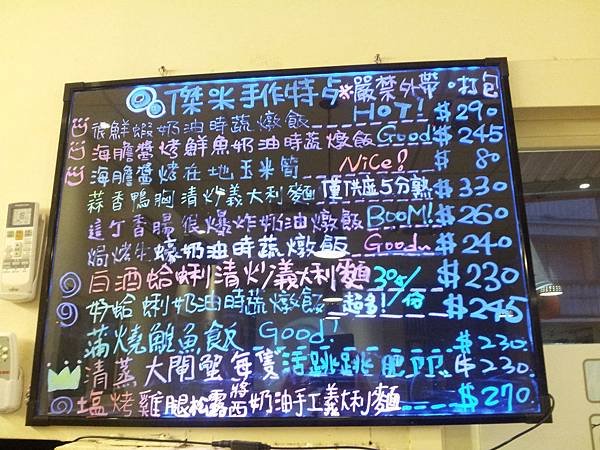 傑米手作特点 ※嚴禁外帶·打包
很鮮蝦奶油時蔬燉飯 HOT! $290
海膽醬烤鮮魚奶油時蔬燉飯 Good $245
海膽醬烤在地玉米筍 Nice! $80
蒜香鴨胸清炒義大利麵 僅供应5分熟 $330
這ㄍ香腸很爆炸奶油燉飯 BooM! $260
焗烤生蠔奶油時蔬燉飯 Good $240
白酒蛤蜊清炒義大利麵 $230
奶蛤蜊奶油時蔬燉飯 超多! $245
蒲燒鯛魚飯 Good! $230
清蒸大閘蟹每隻活跳跳肥ㄗㄗ $230
塩烤雞腿松露將西奶油手工義大利麵 $270